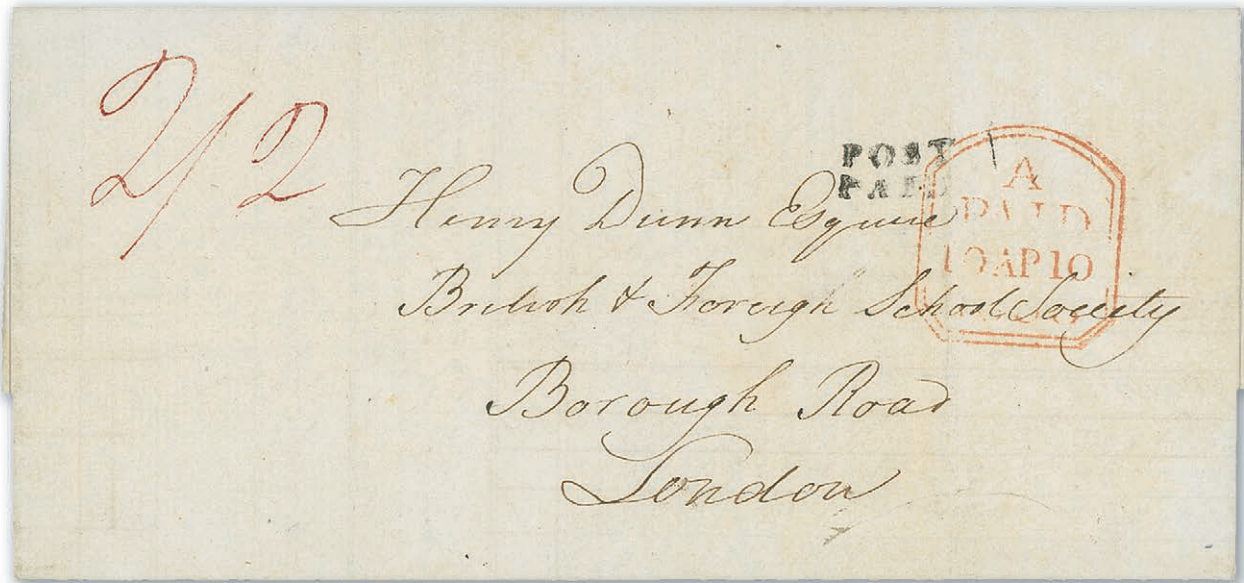 2/2
POST
PAID
A
PAID
10 AP 10
Henry Dunn Esquire
British & Foreign School Society
Borough Road
London